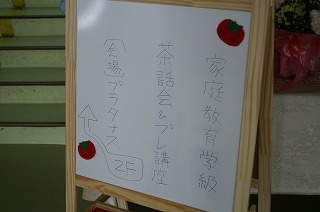 家庭教育学級
茶話会&プレ講座
(会場)プラタナス
2F